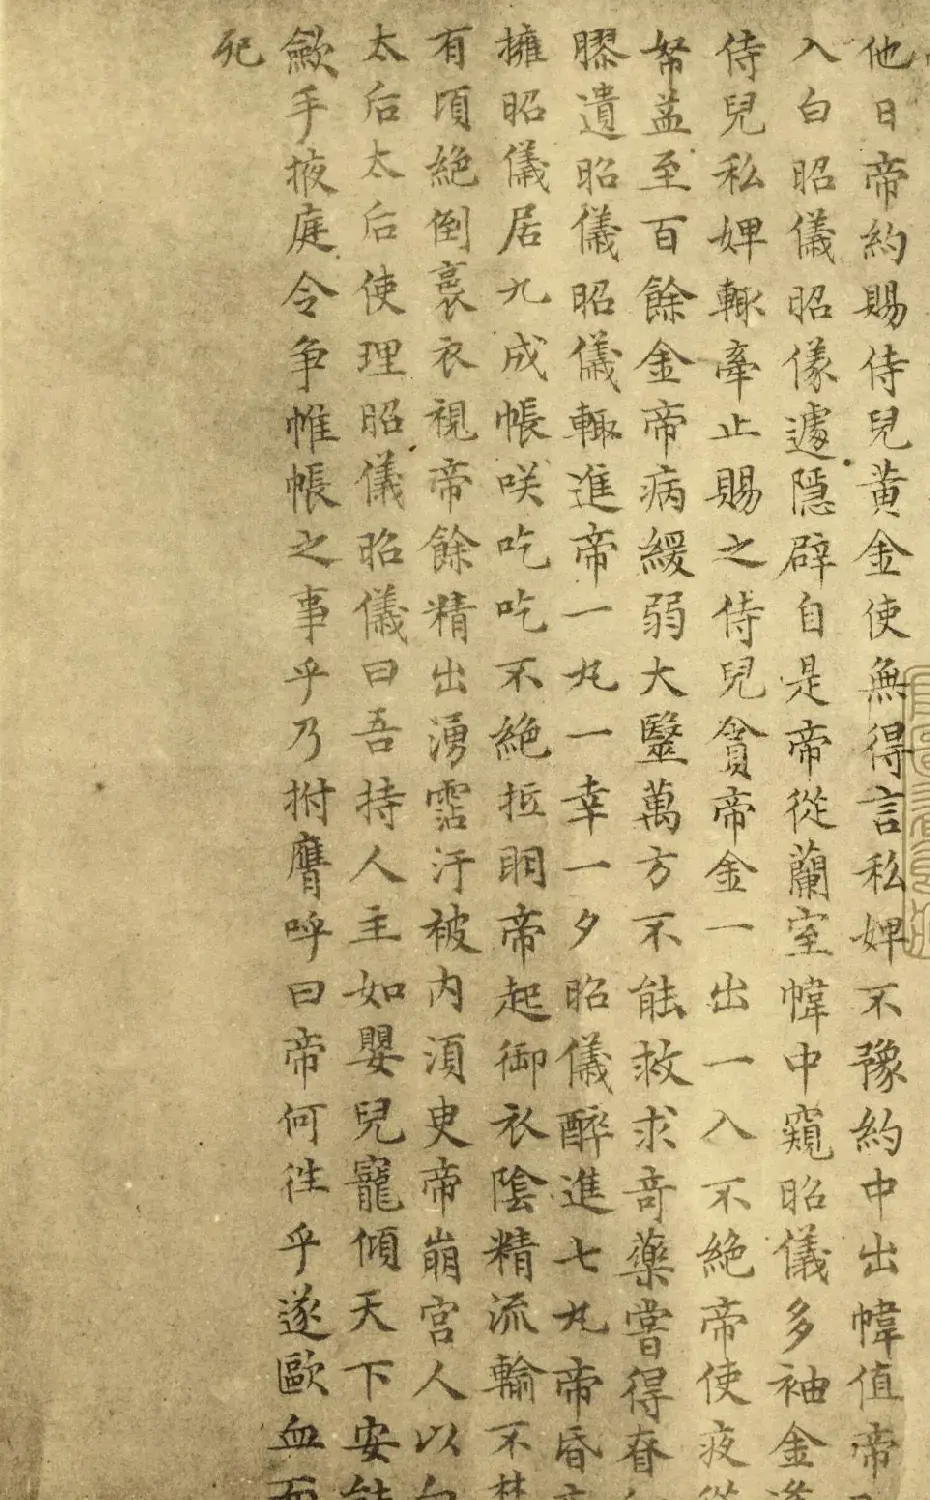 他日帝約賜侍兒黃金使無得言私婢不豫約中出幃值帝
入白昭儀昭儀遽隱辟自是帝從蘭室幃中窺昭儀多袖金
侍兒私婢輙牽止賜之侍兒貪帝金一出一入不絕帝使夜從
帑益至百餘金帝病緩弱大毉萬方不能救求奇藥嘗得眘
膠遺昭儀昭儀輙進帝一丸一幸一夕昭儀醉進七丸帝昏
擁昭儀居九成帳咲吃吃不絕抵明帝起御衣陰精流輸不禁
有頃絕倒裛衣視帝餘精出湧霑汙被內須臾帝崩宮人以白
太后太后使理昭儀昭儀曰吾持人主如嬰兒寵傾天下安能
歛手掖庭令爭帷帳之事乎乃拊膺呼曰帝何徃乎遂歐血而
死